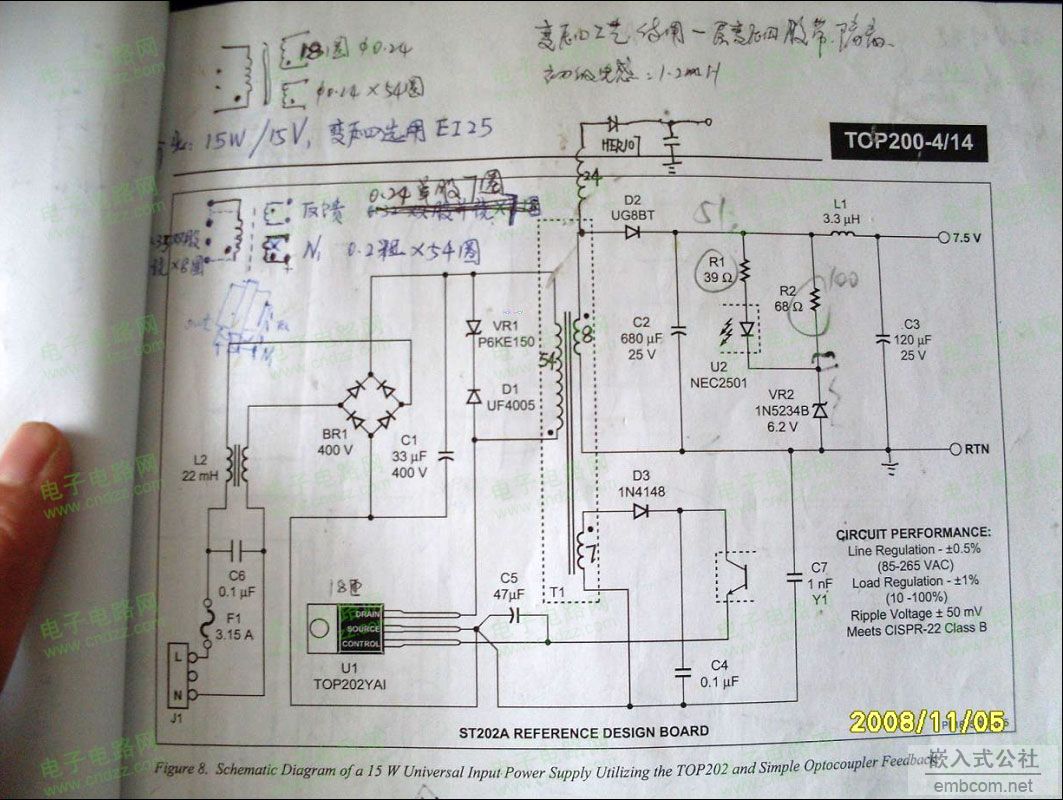 18圈 φ0.24
φ0.14×54圈
15W/15V, 变压器选用 EI25
初级电感:1.2mH
HER107
24
TOP200-4/14
0.24 单股 7圈
反馈
N, 0.2粗×54圈
D2
UG8BT
51
L1
3.3 µH
7.5 V
R1
39 Ω
R2
68 Ω
100
VR1
P6KE150
C2
680 µF
25 V
C3
120 µF
25 V
54
8
U2
NEC2501
D1
UF4005
VR2
1N5234B
6.2 V
BR1
400 V
C1
33 µF
400 V
RTN
L2
22 mH
D3
1N4148
CIRCUIT PERFORMANCE:
Line Regulation - ±0.5%
(85-265 VAC)
Load Regulation - ±1%
(10 -100%)
Ripple Voltage ± 50 mV
Meets CISPR-22 Class B
7
C6
0.1 µF
C5
47µF
T1
C7
1 nF
Y1
F1
3.15 A
DRAIN
SOURCE
CONTROL
L
N
J1
U1
TOP202YAI
C4
0.1 µF
ST202A REFERENCE DESIGN BOARD
2008/11/05
Figure 8. Schematic Diagram of a 15 W Universal Input Power Supply Utilizing the TOP202 and Simple Optocoupler Feedback
嵌入式公社
embcom.net
电子电路网
www.cndzz.com